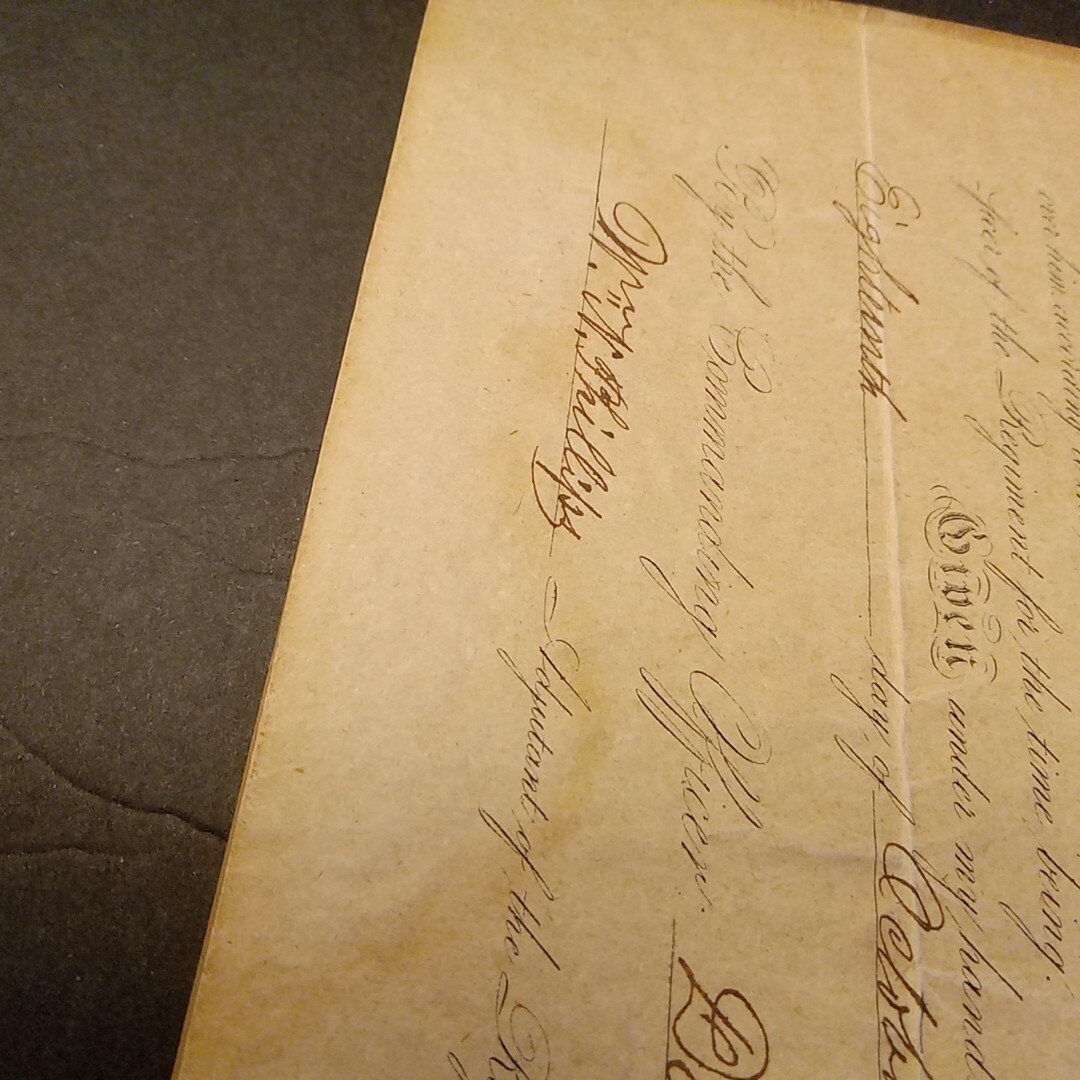 over him according
-ficer of the Regiment for the time being.
Given under my hand
Eighteenth day of October
By the Commanding Officer.
Wm. A. Phillips Adjutant of the